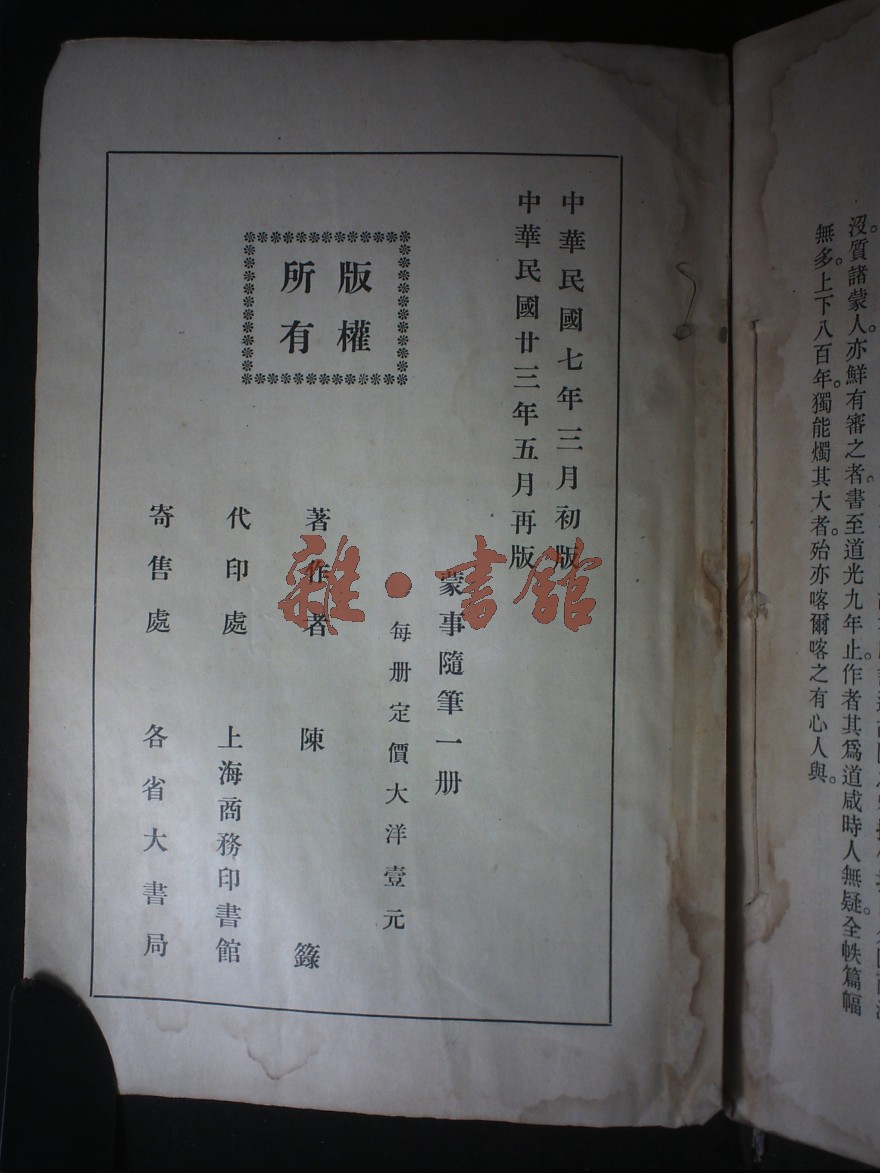 沒。質諸蒙人。亦鮮有審之者。書至道光九年止。作者其爲道咸時人無疑。全帙篇幅
無多。上下八百年。獨能燭其大者。殆亦喀爾喀之有心人與。
中華民國七年三月初版
中華民國廿三年五月再版
蒙事隨筆一册
每册定價大洋壹元
著作者 陳籙
代印處 上海商務印書館
寄售處 各省大書局
版權
所有
雜·書館